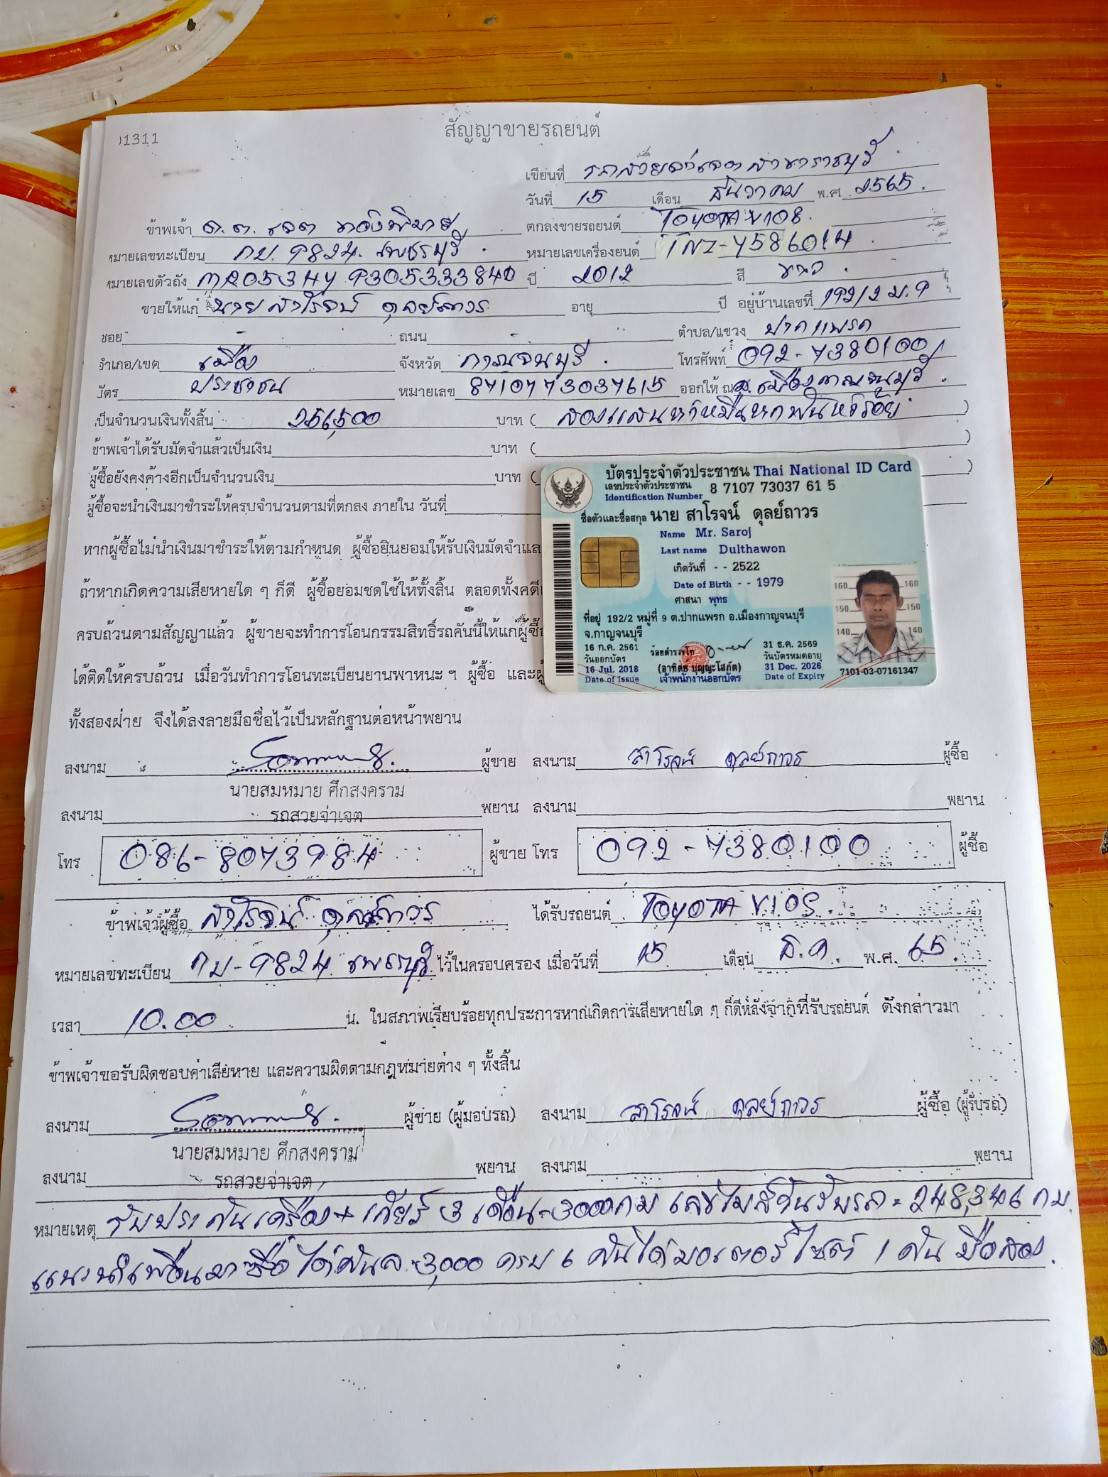 01311
สัญญาขายรถยนต์
เขียนที่ รถสวยจ่าเจต สาขาราชบุรี
วันที่ 15 เดือน ธันวาคม พ.ศ. 2565.
ข้าพเจ้า ด.ต. เจต ตกลงขายรถยนต์ TOYOTA VIOS.
หมายเลขทะเบียน กบ. 9824. เพชรบุรี หมายเลขเครื่องยนต์ 1NZ-Y586014
หมายเลขตัวถัง MR053HY9305333840 ปี 2012 สี
ขายให้แก่ นาย สาโรจน์ ดุลย์ถาวร อายุ ปี อยู่บ้านเลขที่ 192/2 ม.9
ซอย ถนน ตำบล/แขวง ปากแพรก
อำเภอ/เขต เมือง จังหวัด กาญจนบุรี. โทรศัพท์ 092-7380100
บัตร ประชาชน หมายเลข 8710773037615 ออกให้ ณ อ.เมืองกาญจนบุรี.
เป็นจำนวนเงินทั้งสิ้น 256,500 บาท ( สองแสนห้าหมื่นหกพันห้าร้อย )
ข้าพเจ้าได้รับมัดจำแล้วเป็นเงิน บาท ( )
ผู้ซื้อยังคงค้างอีกเป็นจำนวนเงิน บาท ( )
ผู้ซื้อจะนำเงินมาชำระให้ครบจำนวนตามที่ตกลง ภายใน วันที่
หากผู้ซื้อไม่นำเงินมาชำระให้ตามกำหนด ผู้ซื้อยินยอมให้ริบเงินมัดจำและ
ถ้าหากเกิดความเสียหายใด ๆ ก็ดี ผู้ซื้อยอมชดใช้ให้ทั้งสิ้น ตลอดทั้งคดี
ครบถ้วนตามสัญญาแล้ว ผู้ขายจะทำการโอนกรรมสิทธิ์รถคันนี้ให้แก่ผู้ซื้อ
ได้ติดให้ครบถ้วน เมื่อวันทำการโอนทะเบียนยานพาหนะ ฯ ผู้ซื้อ และผู้
ทั้งสองฝ่าย จึงได้ลงลายมือชื่อไว้เป็นหลักฐานต่อหน้าพยาน
บัตรประจำตัวประชาชน Thai National ID Card
เลขประจำตัวประชาชน 8 7107 73037 61 5
Identification Number
ชื่อตัวและชื่อสกุล นาย สาโรจน์ ดุลย์ถาวร
Name Mr. Saroj
Last name Dulthawon
เกิดวันที่ - - 2522
Date of Birth - - 1979
ศาสนา พุทธ
ที่อยู่ 192/2 หมู่ที่ 9 ต.ปากแพรก อ.เมืองกาญจนบุรี
จ.กาญจนบุรี
16 ก.ค. 2561
วันออกบัตร
16 Jul. 2018
Date of Issue
เจ้าพนักงานออกบัตร
31 ธ.ค. 2569
วันบัตรหมดอายุ
31 Dec. 2026
Date of Expiry
160 160
150 150
140 140
7101-03-07161347
ลงนาม ผู้ขาย ลงนาม สาโรจน์ ดุลย์ถาวร ผู้ซื้อ
นายสมหมาย ศึกสงคราม
ลงนาม รถสวยจ่าเจต พยาน ลงนาม พยาน
โทร 086-8073984 ผู้ขาย โทร 092-7380100 ผู้ซื้อ
ข้าพเจ้าผู้ซื้อ สาโรจน์ ดุลย์ถาวร ได้รับรถยนต์ TOYOTA VIOS.
หมายเลขทะเบียน กบ-9824 เพชรบุรี ไว้ในครอบครอง เมื่อวันที่ 15 เดือน ธ.ค. พ.ศ. 65.
เวลา 10.00 น. ในสภาพเรียบร้อยทุกประการหากเกิดการเสียหายใด ๆ ก็ดีหลังจากที่รับรถยนต์ ดังกล่าวมา
ข้าพเจ้าขอรับผิดชอบค่าเสียหาย และความผิดตามกฎหมายต่าง ๆ ทั้งสิ้น
ลงนาม ผู้ขาย (ผู้มอบรถ) ลงนาม สาโรจน์ ดุลย์ถาวร ผู้ซื้อ (ผู้รับรถ)
นายสมหมาย ศึกสงคราม
ลงนาม รถสวยจ่าเจต พยาน ลงนาม พยาน
หมายเหตุ รับประกันเครื่อง + เกียร์ 3 เดือน=3000กม เลขไมล์วันรับรถ = 248,346 กม.
แนะนำเพื่อนมาซื้อ ได้คันละ 3,000 ครบ 6 คันได้มอเตอร์ไซค์ 1 คัน มือสอง.